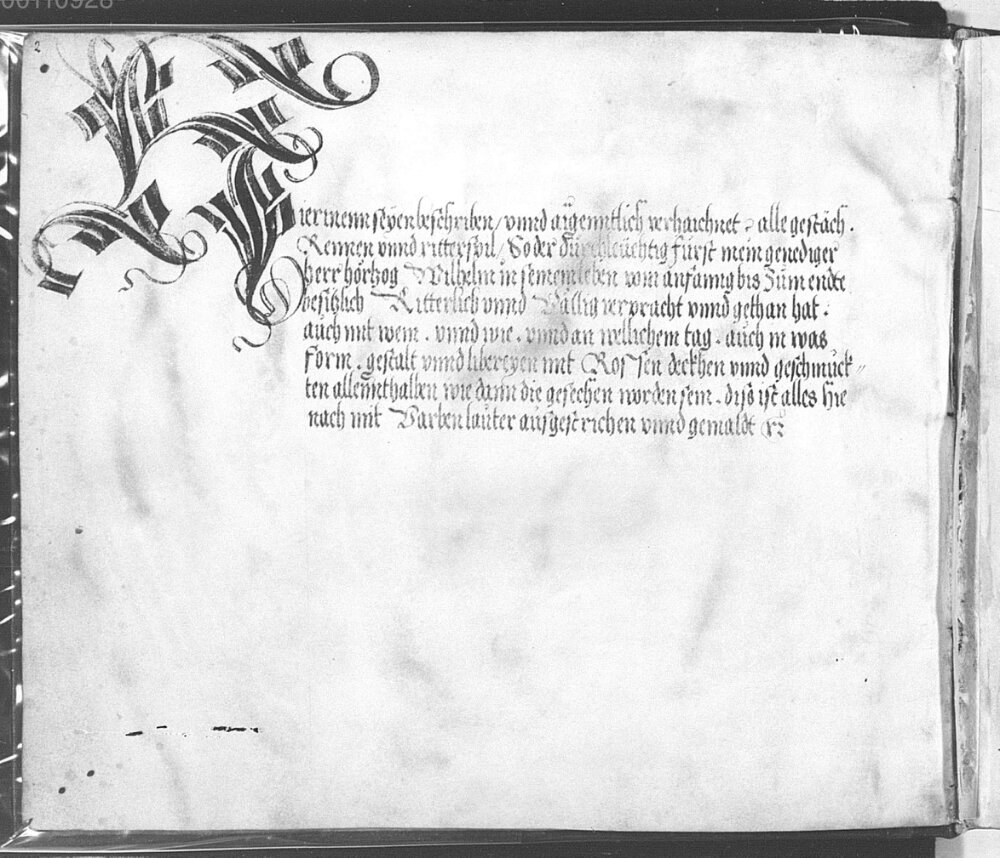 00110928
2
Hierinenn seyen beschriben / vnnd aygenntlich verzaichnet alle gestäch.
Rennen vnnd ritterspil / So der Durchleuchtig fürst mein genediger
herr hörtzog Wilhelm in seinem leben vom anfanng bis zum endte
besitzlich Ritterlich vnnd Vällig verpracht vnnd gethan hat.
auch mit wem. vnnd wie. vnnd an wellichem tag. auch in was
form. gestalt vnnd libereyen mit Rossen deckhen vnnd geschmuck-
ten allennthallen wie dann die gesechen worden sein. diß ist alles hie
nach mit Varben lauter ausgestrichen vnnd gemaldt ꝛc